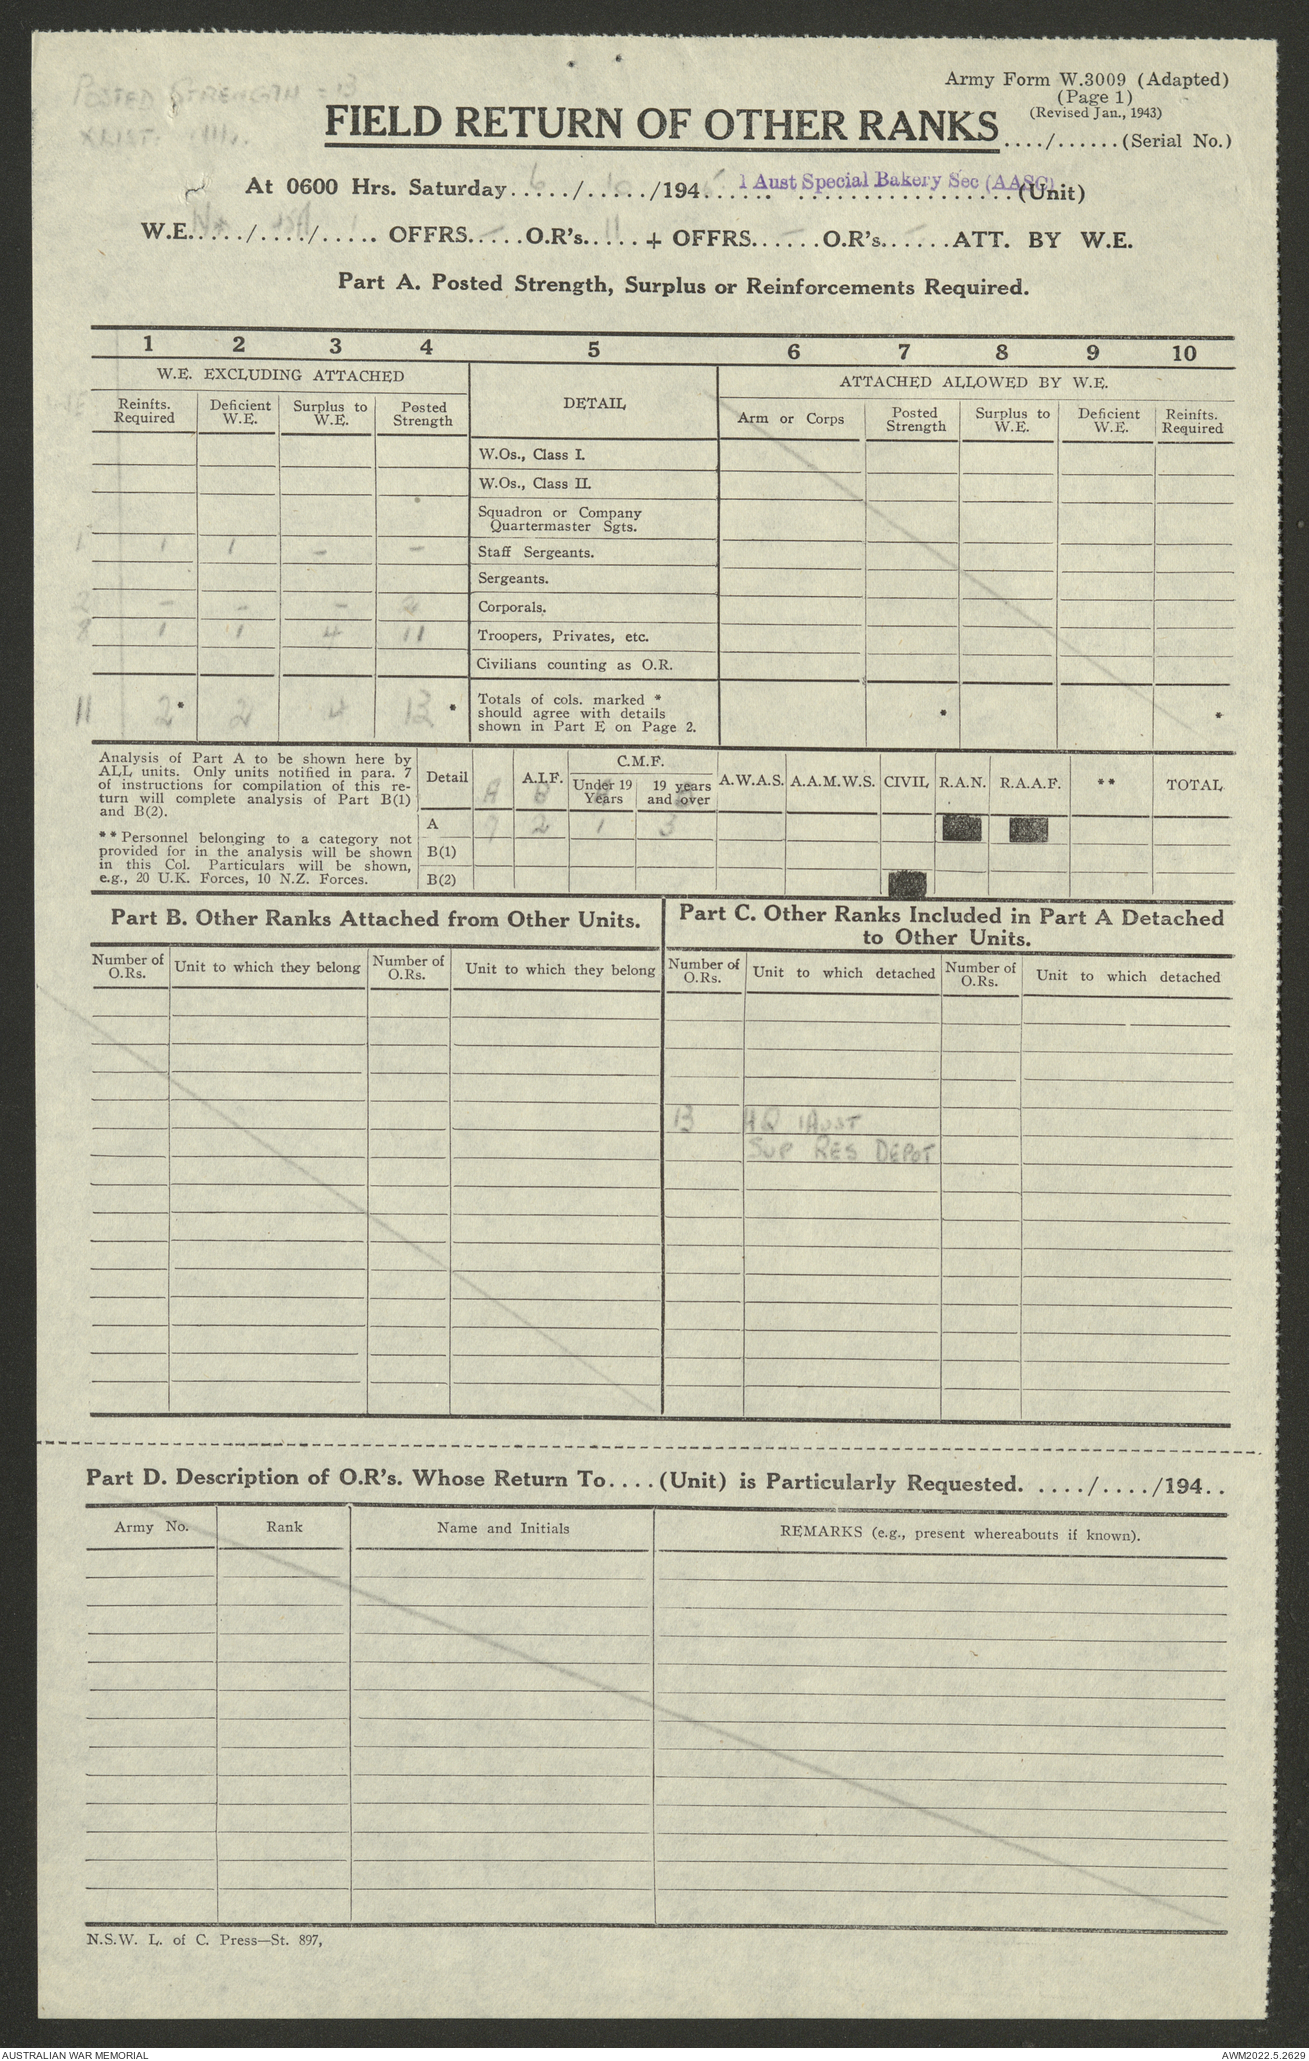 POSTED STRENGTH = 13
X LIST.
Army Form W.3009 (Adapted)
(Page 1)
(Revised Jan., 1943)
FIELD RETURN OF OTHER RANKS ..../......(Serial No.)
At 0600 Hrs. Saturday 6 / 10 /194 5 1 Aust Special Bakery Sec (AASC) (Unit)
W.E...../..../..... OFFRS. – O.R's. 11 + OFFRS. – O.R's. – ATT. BY W.E.
Part A. Posted Strength, Surplus or Reinforcements Required.
1 2 3 4 5 6 7 8 9 10
W.E. EXCLUDING ATTACHED DETAIL ATTACHED ALLOWED BY W.E.
Reinfts. Required Deficient W.E. Surplus to W.E. Posted Strength Arm or Corps Posted Strength Surplus to W.E. Deficient W.E. Reinfts. Required
W.Os., Class I.
W.Os., Class II.
Squadron or Company
Quartermaster Sgts.
1 1 1 – – Staff Sergeants.
Sergeants.
2 – – – 2 Corporals.
8 1 1 4 11 Troopers, Privates, etc.
Civilians counting as O.R.
11 2* 2 4 13 * Totals of cols. marked * * *
should agree with details
shown in Part E on Page 2.
Analysis of Part A to be shown here by
ALL units. Only units notified in para. 7
of instructions for compilation of this re-
turn will complete analysis of Part B(1)
and B(2).
** Personnel belonging to a category not
provided for in the analysis will be shown
in this Col. Particulars will be shown,
e.g., 20 U.K. Forces, 10 N.Z. Forces.
Detail A.I.F. C.M.F. A.W.A.S. A.A.M.W.S. CIVIL R.A.N. R.A.A.F. ** TOTAL
Under 19 Years 19 years and over
A B
A 7 2 1 3
B(1)
B(2)
Part B. Other Ranks Attached from Other Units.
Number of O.Rs. Unit to which they belong Number of O.Rs. Unit to which they belong
Part C. Other Ranks Included in Part A Detached
to Other Units.
Number of O.Rs. Unit to which detached Number of O.Rs. Unit to which detached
13 HQ 1 AUST
SUP RES DEPOT
Part D. Description of O.R's. Whose Return To....(Unit) is Particularly Requested. ..../..../194..
Army No. Rank Name and Initials REMARKS (e.g., present whereabouts if known).
N.S.W. L. of C. Press—St. 897,
AUSTRALIAN WAR MEMORIAL AWM2022.5.2629